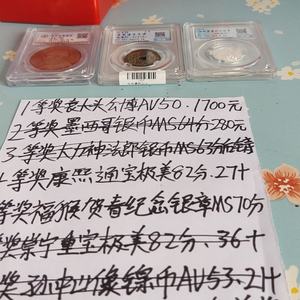 1等奖袁大头公博AU50.1700元
2等奖墨西哥银币MS64分280元
3等奖大力神法郎银币MS63分
等奖康熙通宝极美82分.27十
等奖福猴贺春纪念银章MS70分
奖崇宁重宝极美82分.36十
奖孙中山像镍币AU53.2十